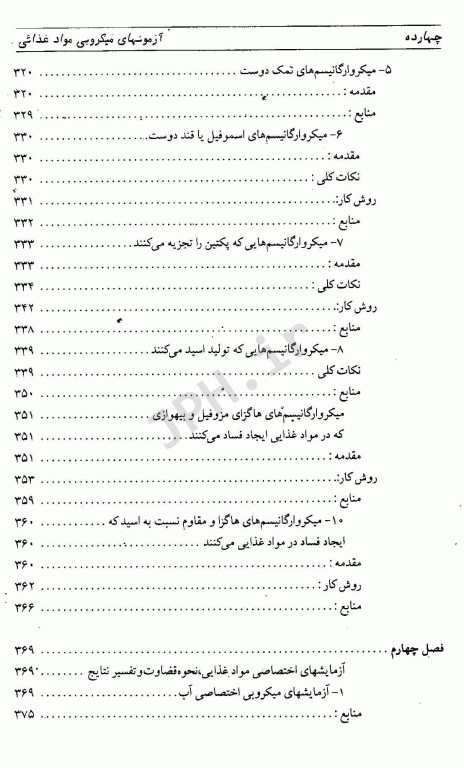 چهارده آزمونهای میکروبی مواد غذائی
۵- میکروارگانیسم‌های نمک دوست ............ ۳۲۰
مقدمه : ............ ۳۲۰
منابع : ............ ۳۲۹
۶- میکروارگانیسم‌های اسموفیل یا قند دوست ............ ۳۳۰
مقدمه : ............ ۳۳۰
نکات کلی : ............ ۳۳۰
روش کار: ............ ۳۳۱
منابع : ............ ۳۳۲
۷- میکروارگانیسم‌هایی که پکتین را تجزیه می‌کنند ............ ۳۳۳
مقدمه : ............ ۳۳۳
نکات کلی : ............ ۳۳۴
روش کار: ............ ۳۴۲
منابع : ............ ۳۳۸
۸- میکروارگانیسم‌هایی که تولید اسید می‌کنند ............ ۳۳۹
نکات کلی ............ ۳۳۹
منابع : ............ ۳۵۰
میکروارگانیسم‌های هاگزای مزوفیل و بیهوازی ............ ۳۵۱
که در مواد غذایی ایجاد فساد می‌کنند ............ ۳۵۱
مقدمه : ............ ۳۵۱
روش کار: ............ ۳۵۳
منابع : ............ ۳۵۹
۱۰- میکروارگانیسم‌های هاگزا و مقاوم نسبت به اسید که ............ ۳۶۰
ایجاد فساد در مواد غذایی می‌کنند ............ ۳۶۰
مقدمه : ............ ۳۶۰
روش کار : ............ ۳۶۲
منابع : ............ ۳۶۶
فصل چهارم ............ ۳۶۹
آزمایشهای اختصاصی مواد غذایی، نحوه قضاوت و تفسیر نتایج ............ ۳۶۹
۱- آزمایشهای میکروبی اختصاصی آب ............ ۳۶۹
منابع : ............ ۳۷۵
JPH.ir